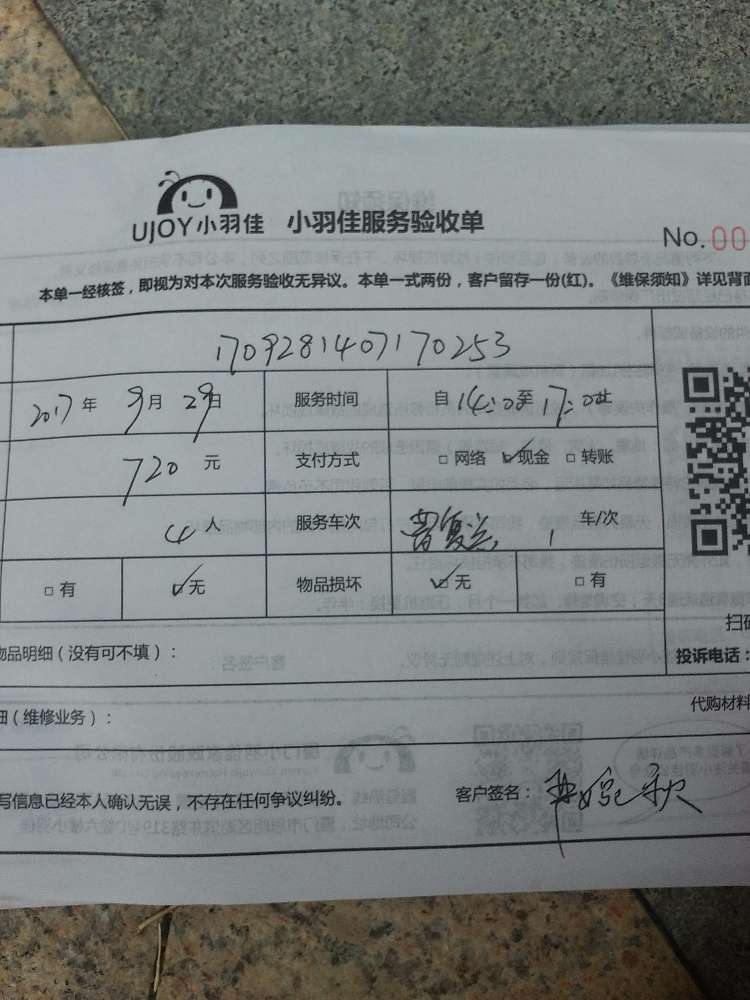 UJOY小羽佳 小羽佳服务验收单
No.00
本单一经核签，即视为对本次服务验收无异议。本单一式两份，客户留存一份(红)。《维保须知》详见背面
1709281407170253
2017年 9月 29日 服务时间 自14:00至17:00止
720元 支付方式 □网络 ☑现金 □转账
4人 服务车次 曾复兴 1 车/次
□有 ☑无 物品损坏 ☑无 □有
扫码
物品明细（没有可不填）： 投诉电话：
细（维修业务）： 代购材料
写信息已经本人确认无误，不存在任何争议纠纷。 客户签名：